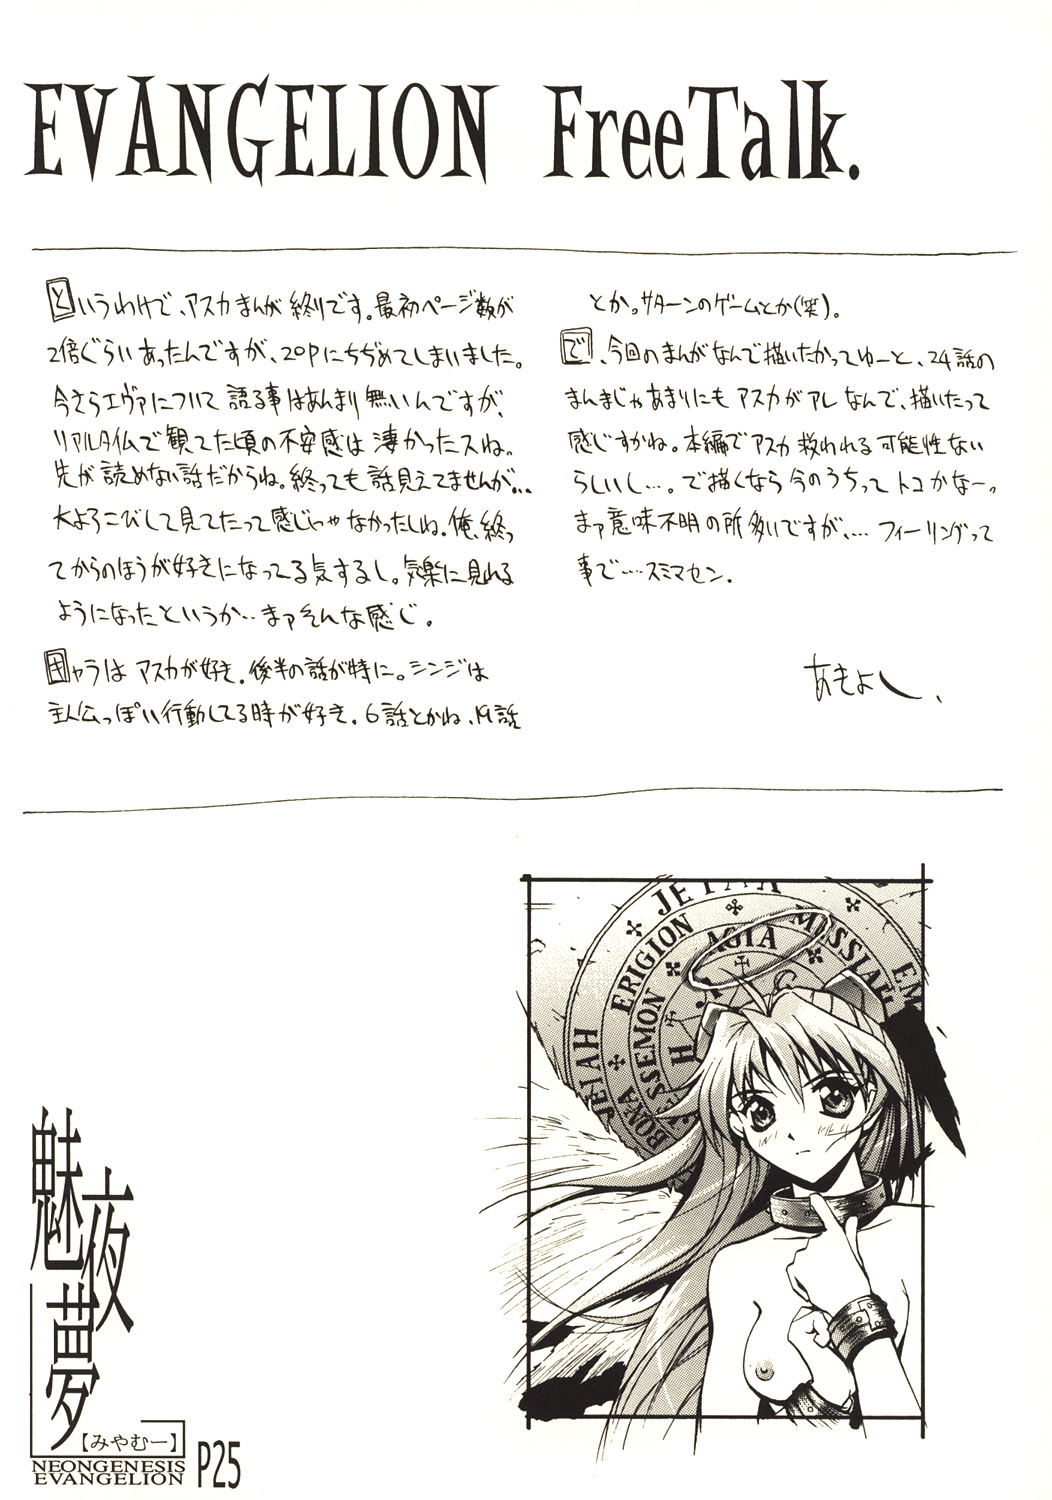 EVANGELION FreeTalk.
というわけで、アスカまんが終りです。最初ページ数が
2倍ぐらいあったんですが、20Pにちぢめてしまいました。
今さらエヴァについて語る事はあんまり無いんですが、
リアルタイムで観てた頃の不安感は凄かったスね。
先が読めない話だからね。終っても話見えてませんが…
大よろこびして見てたって感じじゃなかったしね。俺、終っ
てからのほうが好きになってる気するし。気楽に見れる
ようになったというか‥まァそんな感じ。
キャラはアスカが好き。後半の話が特に。シンジは
主人公っぽい行動してる時が好き。6話とかね、19話
とかっサターンのゲームとか(笑)。
で、今回のまんがなんで描いたかってゆーと、24話の
まんまじゃあまりにもアスカがアレなんで、描いたって
感じすかね。本編でアスカ救われる可能性ない
らしいし…。で描くなら今のうちってトコかなーっ
まァ意味不明の所多いですが、… フィーリングって
事で‥‥スミマセン.
あきよし、
JEIAH
ERIGION
AGIA
MESSIAH
EM
BONA
SSEMON
H
魅夜夢
【みやむー】
NEONGENESIS
EVANGELION
P25